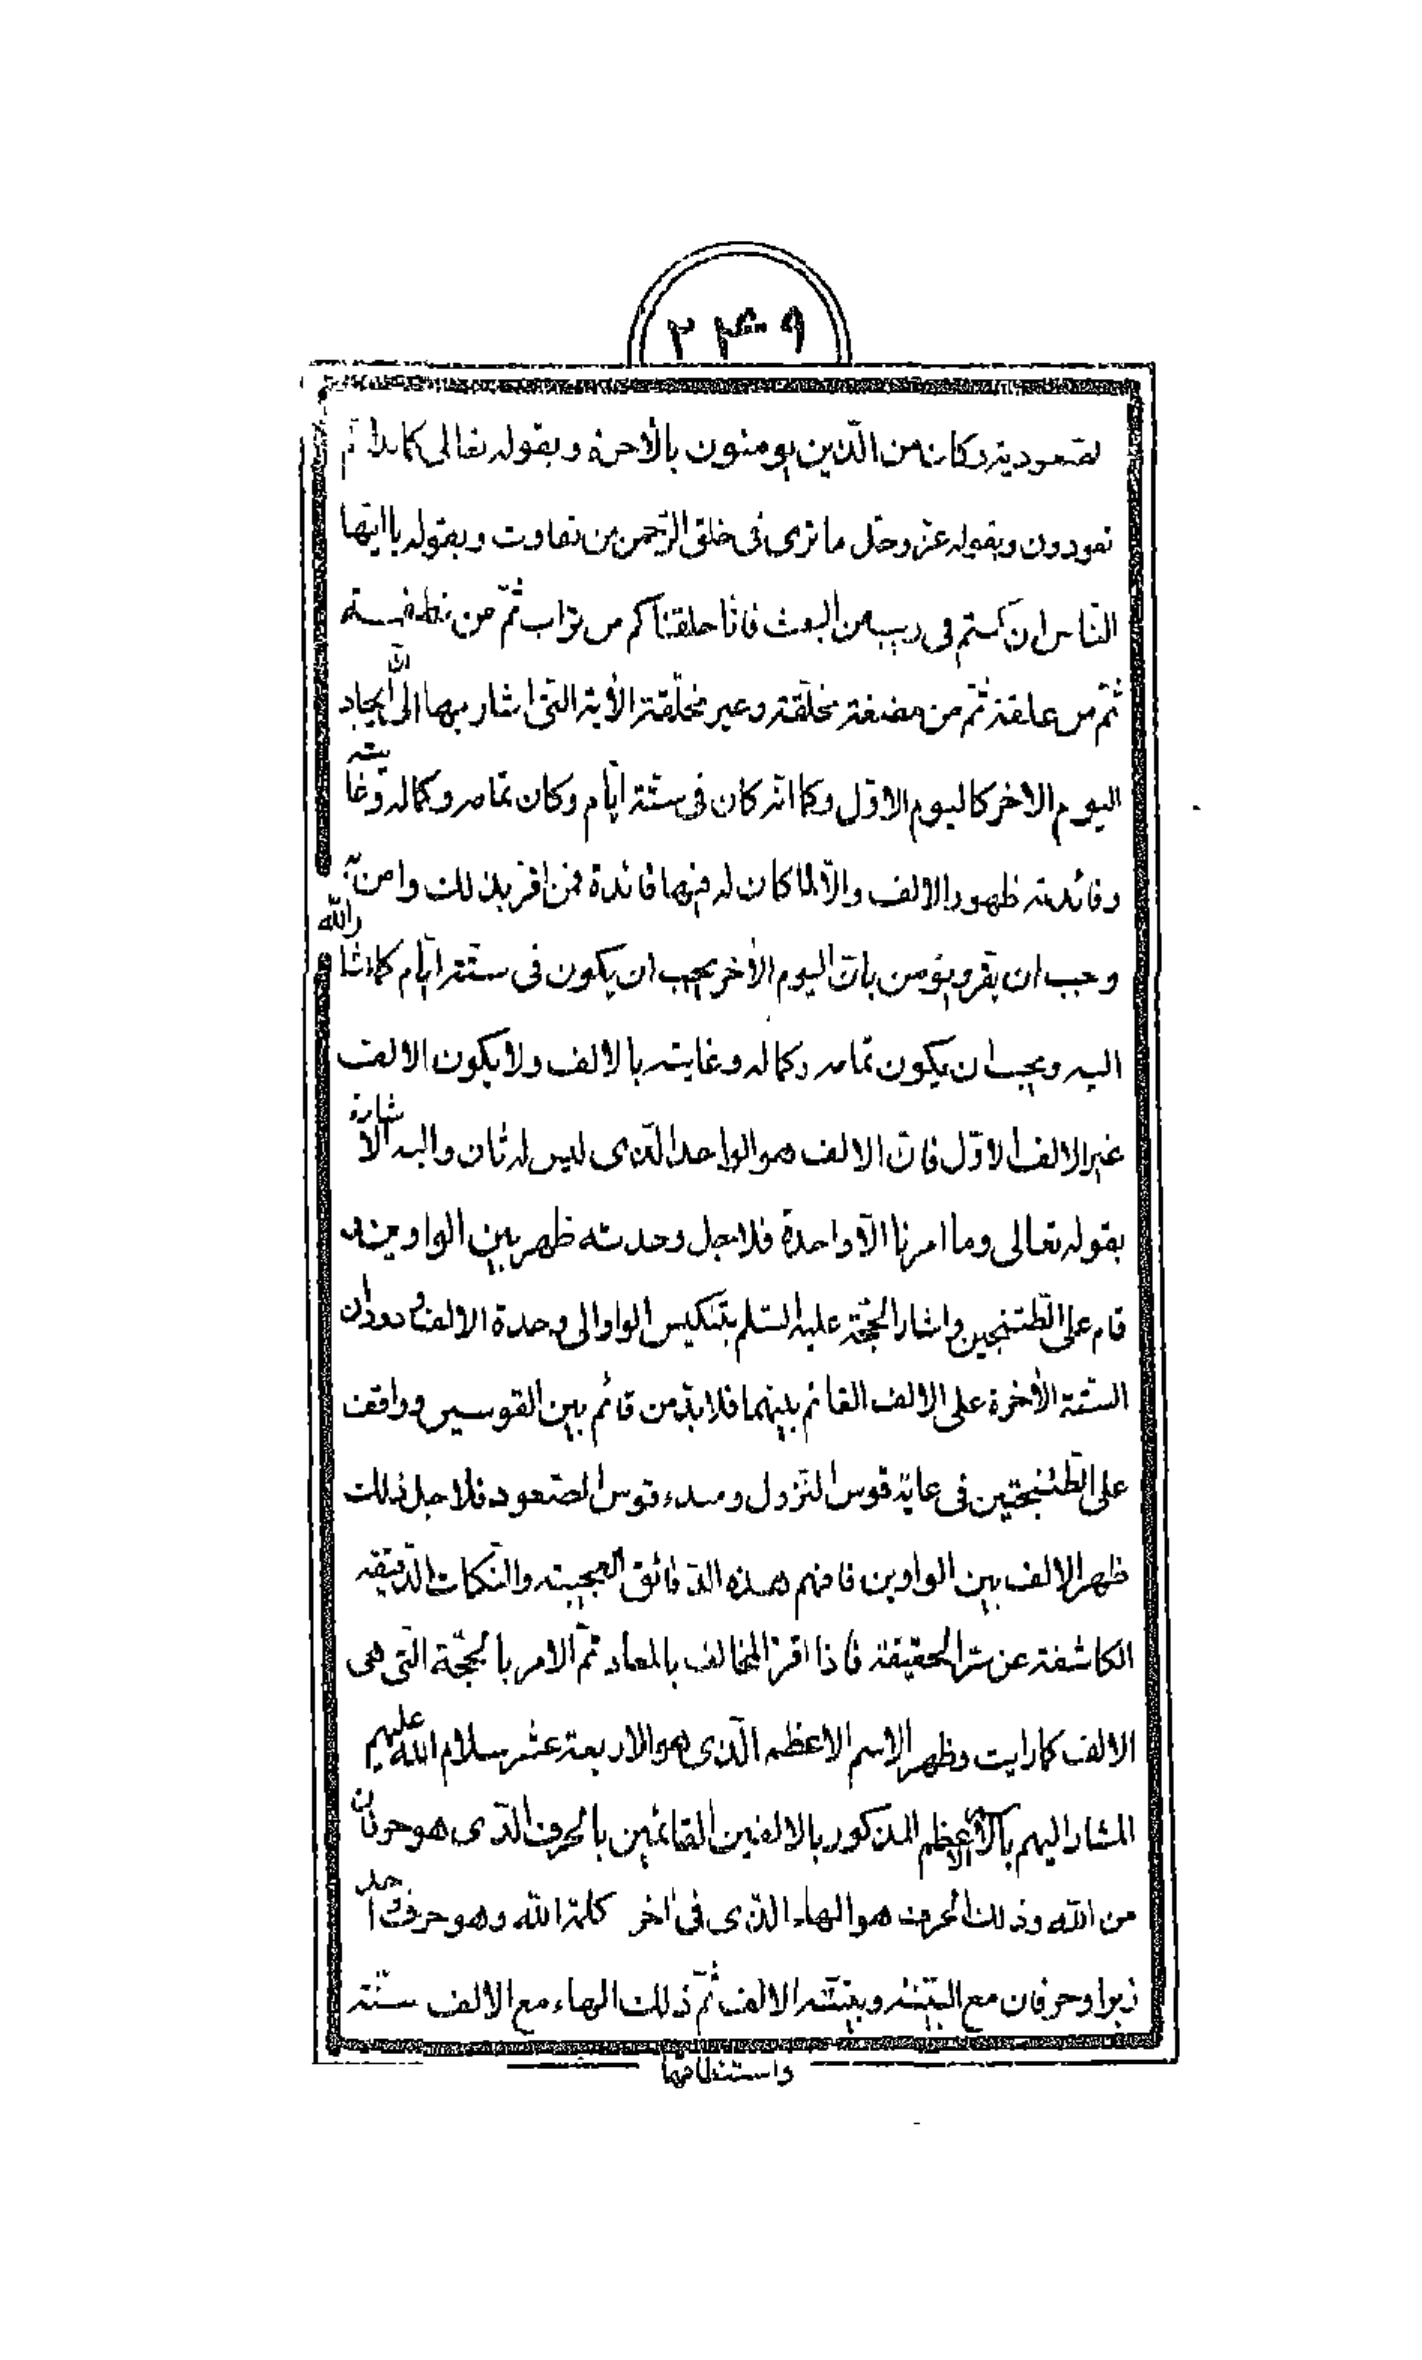 ٢٣٩
لصعوديته وكان من الذين يومنون بالأخرة وبقوله تعالى كما بدأكم
تعودون وبقوله عز وجل ما ترى فى خلق الرحمن من تفاوت وبقوله يا ايها
الناس ان كنتم فى ريب من البعث فانا خلقناكم من تراب ثم من نطفة
ثم من علقة ثم من مضغة مخلقة وغير مخلقة الأية التى اشار بها الى ان ايجاد
اليوم الاخر كاليوم الاول وكما انه كان فى ستة ايام وكان تمامه وكماله وغايته
وفائدته ظهور الالف والا لما كان له فيها فائدة فمن اقر بذلك وامن به
وجب ان يقر ويؤمن بان اليوم الأخر يجب ان يكون فى ستة ايام كما اشار الله
اليه ويجب ان يكون تمامه وكماله وغايته بالالف ولا يكون الالف
غير الالف الاول فان الالف هو الواحد الذى ليس له ثان واليه الاشارة
بقوله تعالى وما امرنا الا واحدة فلاجل وحدته ظهر بين الواوين
قام على الطتنجين واشار الحجة عليه السلم بتنكيس الواو الى وحدة الالف ودوران
الستة الأخرة على الالف القائم بينهما فلابد من قائم بين القوسين وواقف
على الطتنجتين فى غاية قوس النزول ومبدء قوس الصعود فلاجل ذلك
ظهر الالف بين الواوين فافهم هذه الدقائق العجيبة والنكات الدقيقه
الكاشفة عن سر الحقيقة فاذا اقر المخالف بالمعاد تم الامر بالحجة التى هى
الالف كما رايت وظهر الاسم الاعظم الذى هو الاربعة عشر سلام الله عليهم
المشار اليهم بالاسم الاعظم المذكور بالالفين القائمين بالحرف الذى هو حرفان
من الله وذلك الحرف هو الهاء الذى فى أخر كلمة الله وهو حرف واحد
زبرا وحرفان مع البينة وبينته الالف ثم ذلك الهاء مع الالف ستة
واستنطاقها